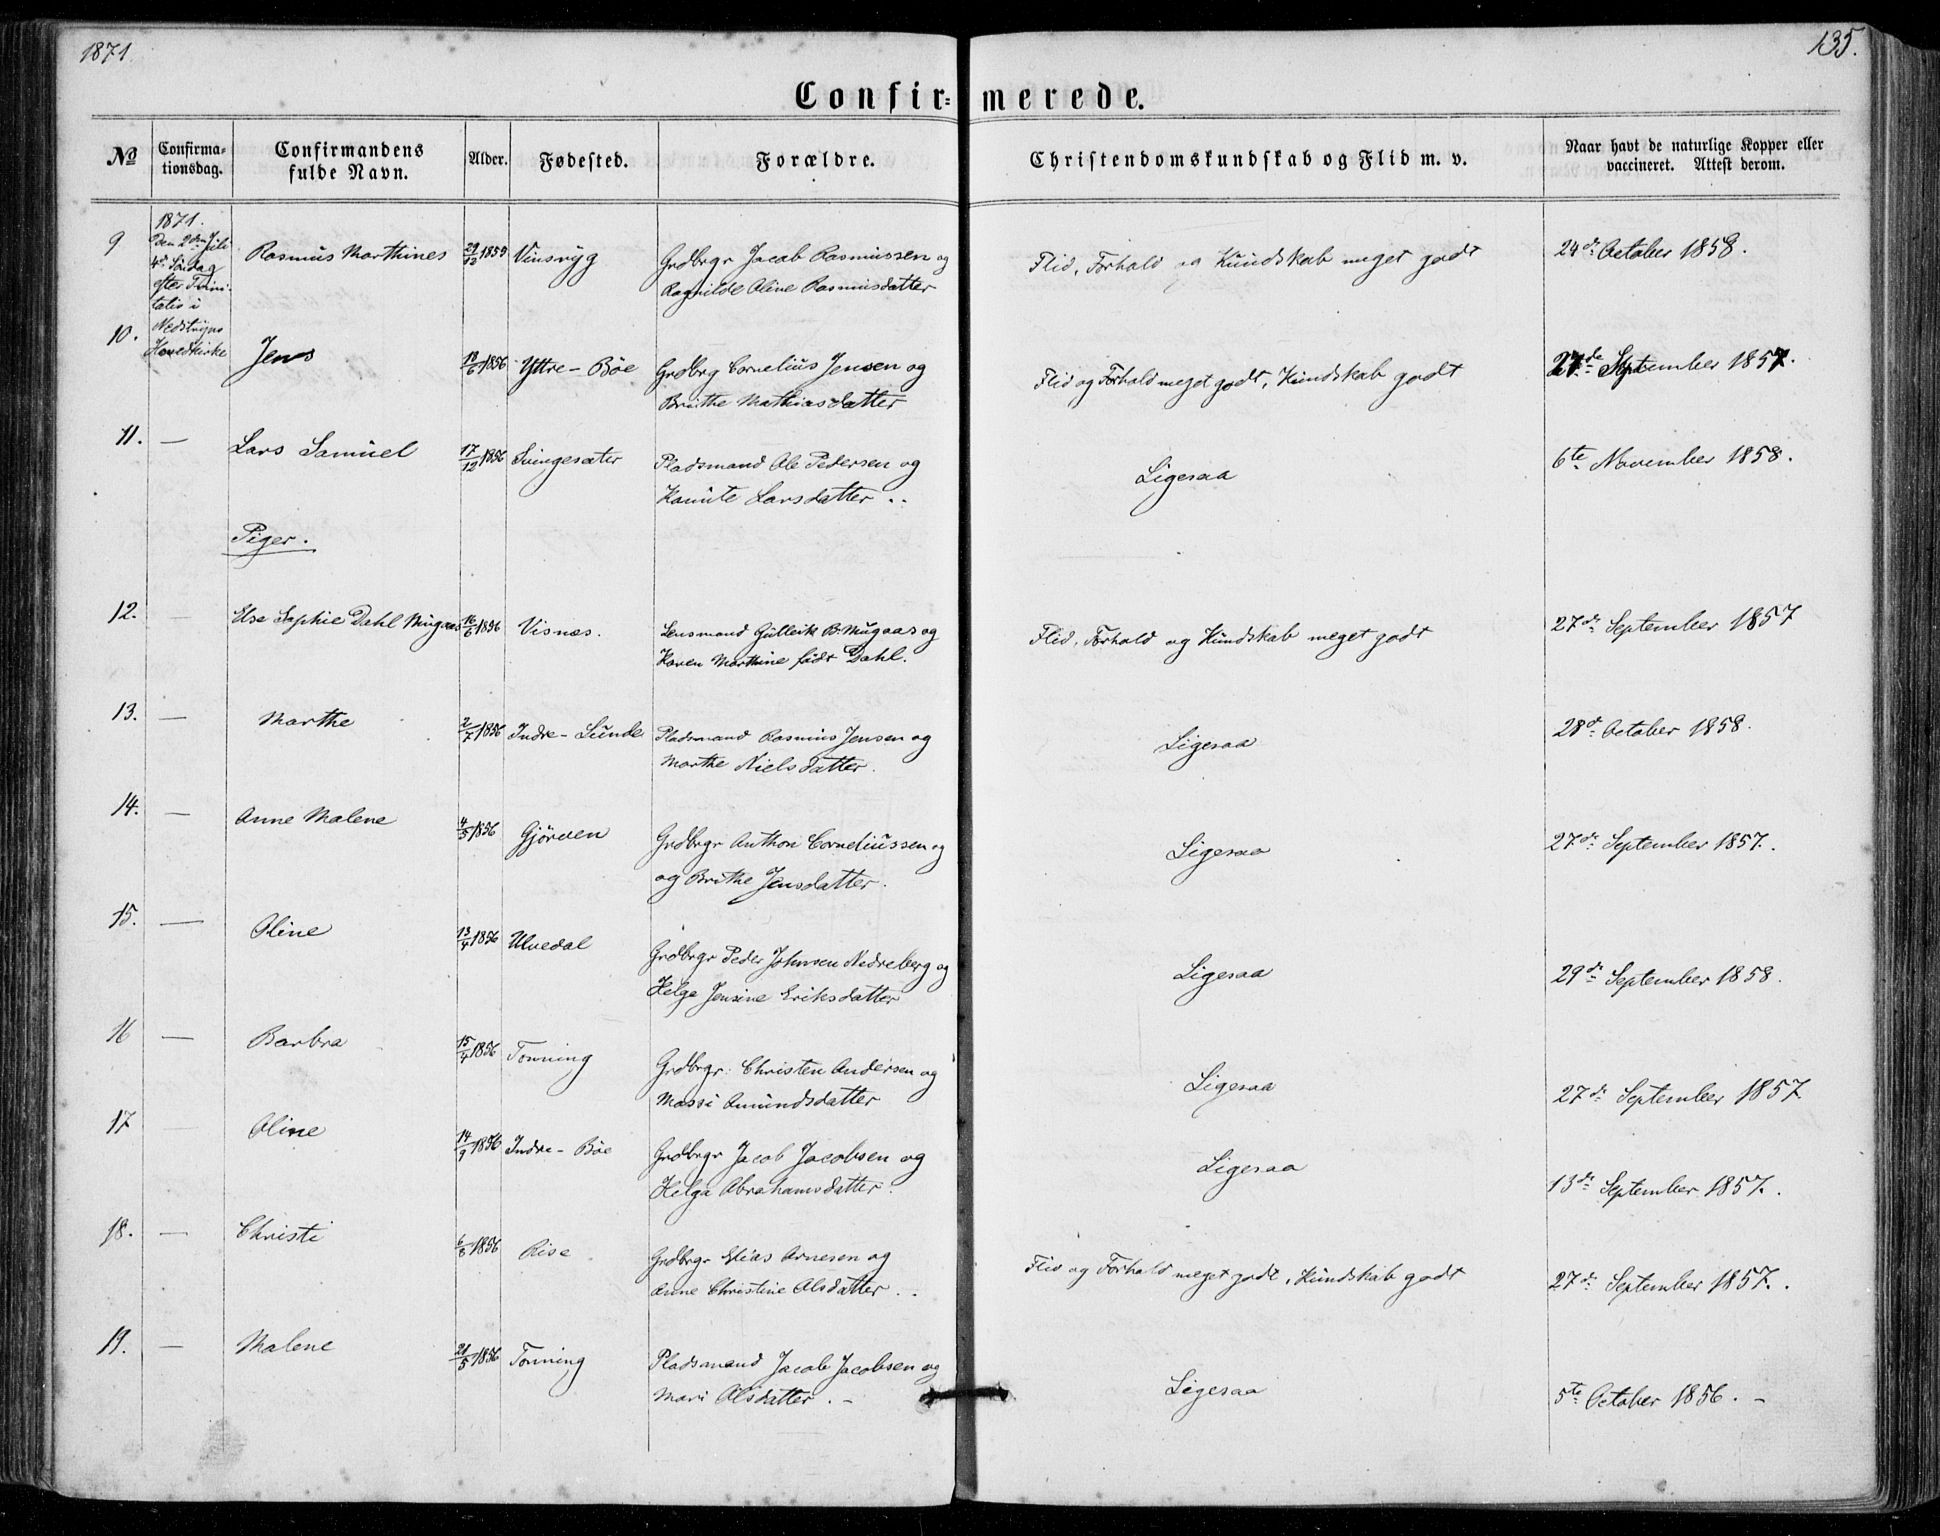 1871.
135.
Confirmerede.
No
Confirmationsdag.
Confirmandens fulde Navn.
Alder.
Fødested.
Forældre.
Christendomskundskab og Flid m. v.
Naar havt de naturlige Kopper eller vaccineret. Attest derom.
9
1871.
Den 2den Juli
4de Søndag
efter Trini-
tatis i
Nedstryns
Hovedkirke
Rasmus Marthines 29/12 1855 Vinsryg Grdbrgr Jacob Rasmussen og
Ragnilde Oline Rasmusdatter
Flid, Forhold og Kundskab meget godt
24de October 1858.
10. Jens 18/6 1856 Yttre-Böe Grdbrg Cornelius Jensen og
Brithe Mathiasdatter
Flid og Forhold meget godt, Kundskab godt
27de September 1857.
11. — Lars Samuel 17/12 1856 Svingesæter Pladsmand Ole Pedersen og
Kanute Larsdatter ..
Ligesaa
6te November 1858.
Piger.
12. — Else Sophie Dahl Mugaas 16/6 1856 Visnes. Lensmand Gulleik B. Mugaas og
Karen Marthine født Dahl.
Flid, Forhold og Kundskab meget godt
27de September 1857
13. — Marthe 2/7 1856 Indre-Sunde Pladsmand Rasmus Jensen og
Marthe Nielsdatter.
Ligesaa
28de October 1858.
14. — Anne Malene 4/5 1856 Gjörven Grdbrgr Anthon Corneliussen og
og Brithe Jensdatter.
Ligesaa
27de September 1857.
15. — Oline 13/4 1856 Ulvedal Grdbrgr Peder Johnsen Nedreberg og
Helge Jensine Eriksdatter
Ligesaa
29de September 1858.
16 — Barbra 15/4 1856 Tonning Grdbrgr. Christen Andersen og
Massi Amundsdatter
Ligesaa
27de September 1857
17 — Oline 14/9 1856 Indre-Böe Grdbrgr Jacob Jacobsen og
Helga Abrahamsdatter.
Ligesaa
13de September 1857.
18. — Christi 6/8 1856 Rise Grdbrgr Elias Arnesen og
Anne Christine Olsdatter ..
Flid og Forhold meget godt, Kundskab godt
27de September 1857.
19. — Malene 21/5 1856 Tonning Pladsmand Jacob Jacobsen og
Mari Olsdatter. -
Ligesaa
5te October 1856. -